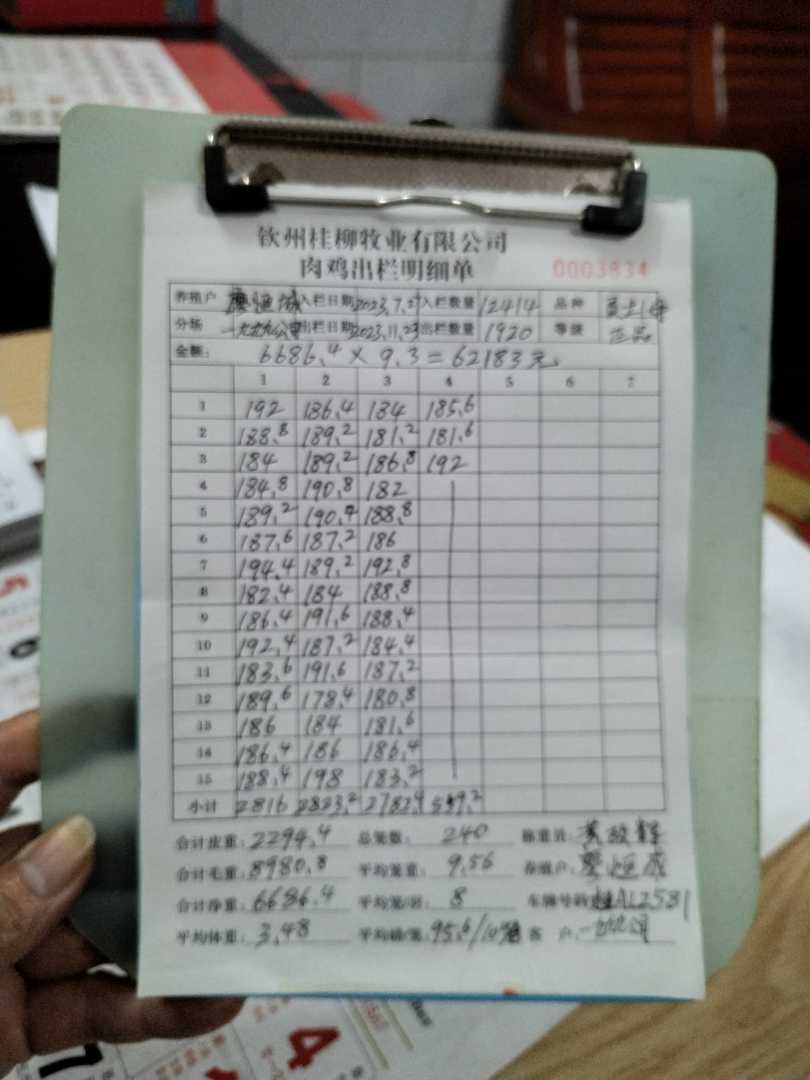 钦州桂柳牧业有限公司
肉鸡出栏明细单 0003834
养殖户 廖恒成 入栏日期 2023.7.2 入栏数量 12414 品种
分场 出栏日期 2023.11.23 出栏数量 1920 等级 正品
金额: 6686.4 × 9.3 = 62183元
1 2 3 4 5 6 7
1 192 186.4 184 185.6
2 188.8 189.2 181.2 181.6
3 184 189.2 186.8 192
4 184.8 190.8 182
5 189.2 190.4 188.8
6 187.6 187.2 186
7 194.4 189.2 192.8
8 182.4 184 188.8
9 186.4 191.6 188.4
10 192.4 187.2 184.4
11 183.6 191.6 187.2
12 189.6 178.4 180.8
13 186 184 181.6
14 186.4 186 186.4
15 188.4 198 183.2
小计 2816 2823.2 2782.4 559.2
合计皮重: 2294.4 总笼数: 240 称重员:
合计毛重: 8980.8 平均笼重: 9.56 养殖户: 廖恒成
合计净重: 6686.4 平均笼/羽: 8 车牌号码: 桂AL2581
平均体重: 3.48 平均磅/笼: 95.6/10笼 客 户: